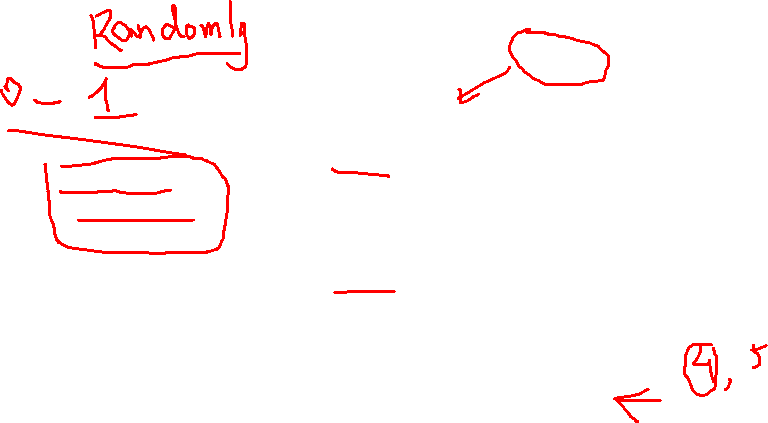 Randomly
0 - 1
4, 5